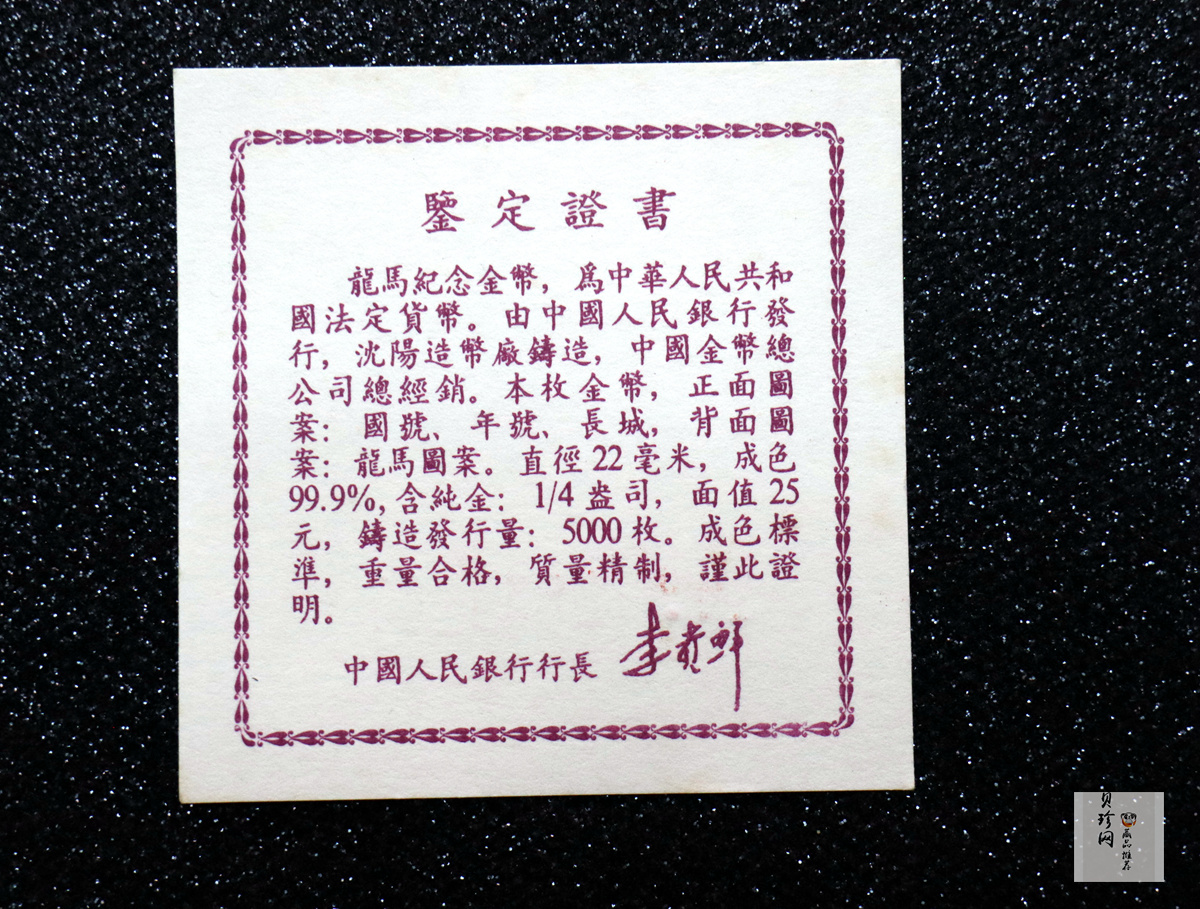 鑒定證書
龍馬紀念金幣，爲中華人民共和
國法定貨幣。由中國人民銀行發
行，沈陽造幣廠鑄造，中國金幣總
公司總經銷。本枚金幣，正面圖
案：國號、年號、長城，背面圖
案：龍馬圖案。直徑22毫米，成色
99.9%，含純金：1/4盎司，面值25
元，鑄造發行量：5000枚。成色標
準，重量合格，質量精制，謹此證
明。
中國人民銀行行長 李貴鲜
贝珍网
藏品推荐